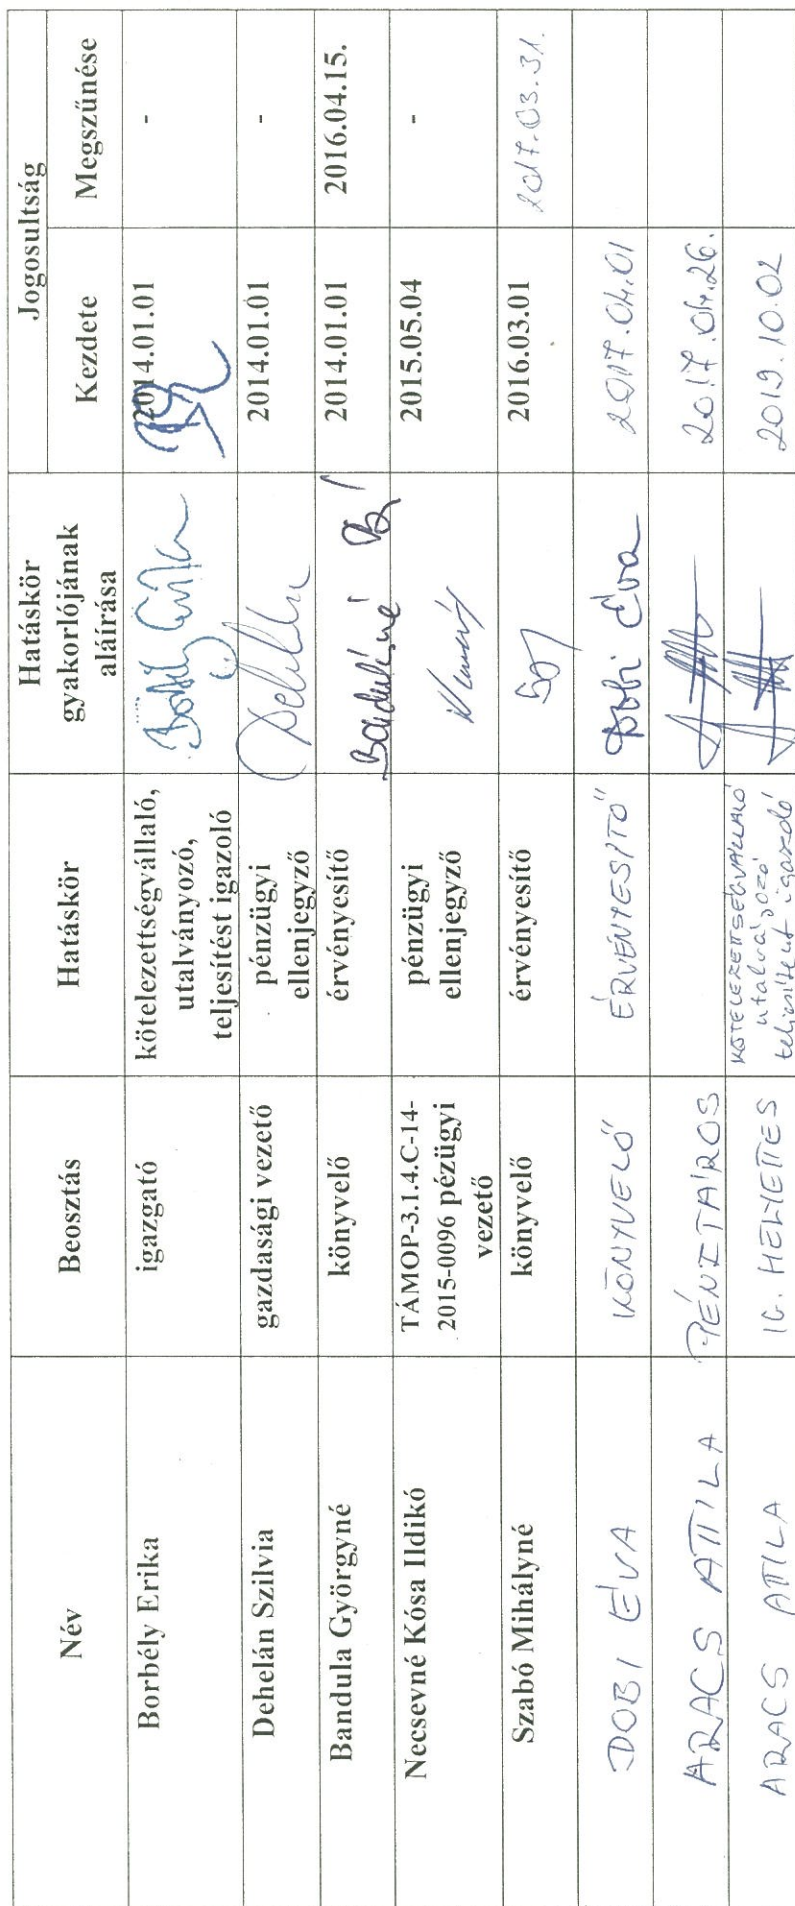 Név
Beosztás
Hatáskör
Hatáskör
gyakorlójának
aláírása
Jogosultság
Kezdete
Megszűnése
Borbély Erika
igazgató
kötelezettségvállaló,
utalványozó,
teljesítést igazoló
Borbély Erika
2014.01.01
-
Dehelán Szilvia
gazdasági vezető
pénzügyi
ellenjegyző
2014.01.01
-
Bandula Györgyné
könyvelő
érvényesítő
2014.01.01
2016.04.15.
Necsevné Kósa Ildikó
TÁMOP-3.1.4.C-14-
2015-0096 pézügyi
vezető
pénzügyi
ellenjegyző
2015.05.04
-
Szabó Mihályné
könyvelő
érvényesítő
2016.03.01
2017.03.31.
DOBI ÉVA
KÖNYVELŐ
ÉRVÉNYESÍTŐ
Dobi Éva
2017.04.01
ARACS ATTILA
PÉNZTÁROS
2017.04.26.
ARACS ATTILA
IG. HELYETTES
KÖTELEZETTSÉGVÁLLALÓ
utalványozó
teljesítést igazoló
2019.10.02